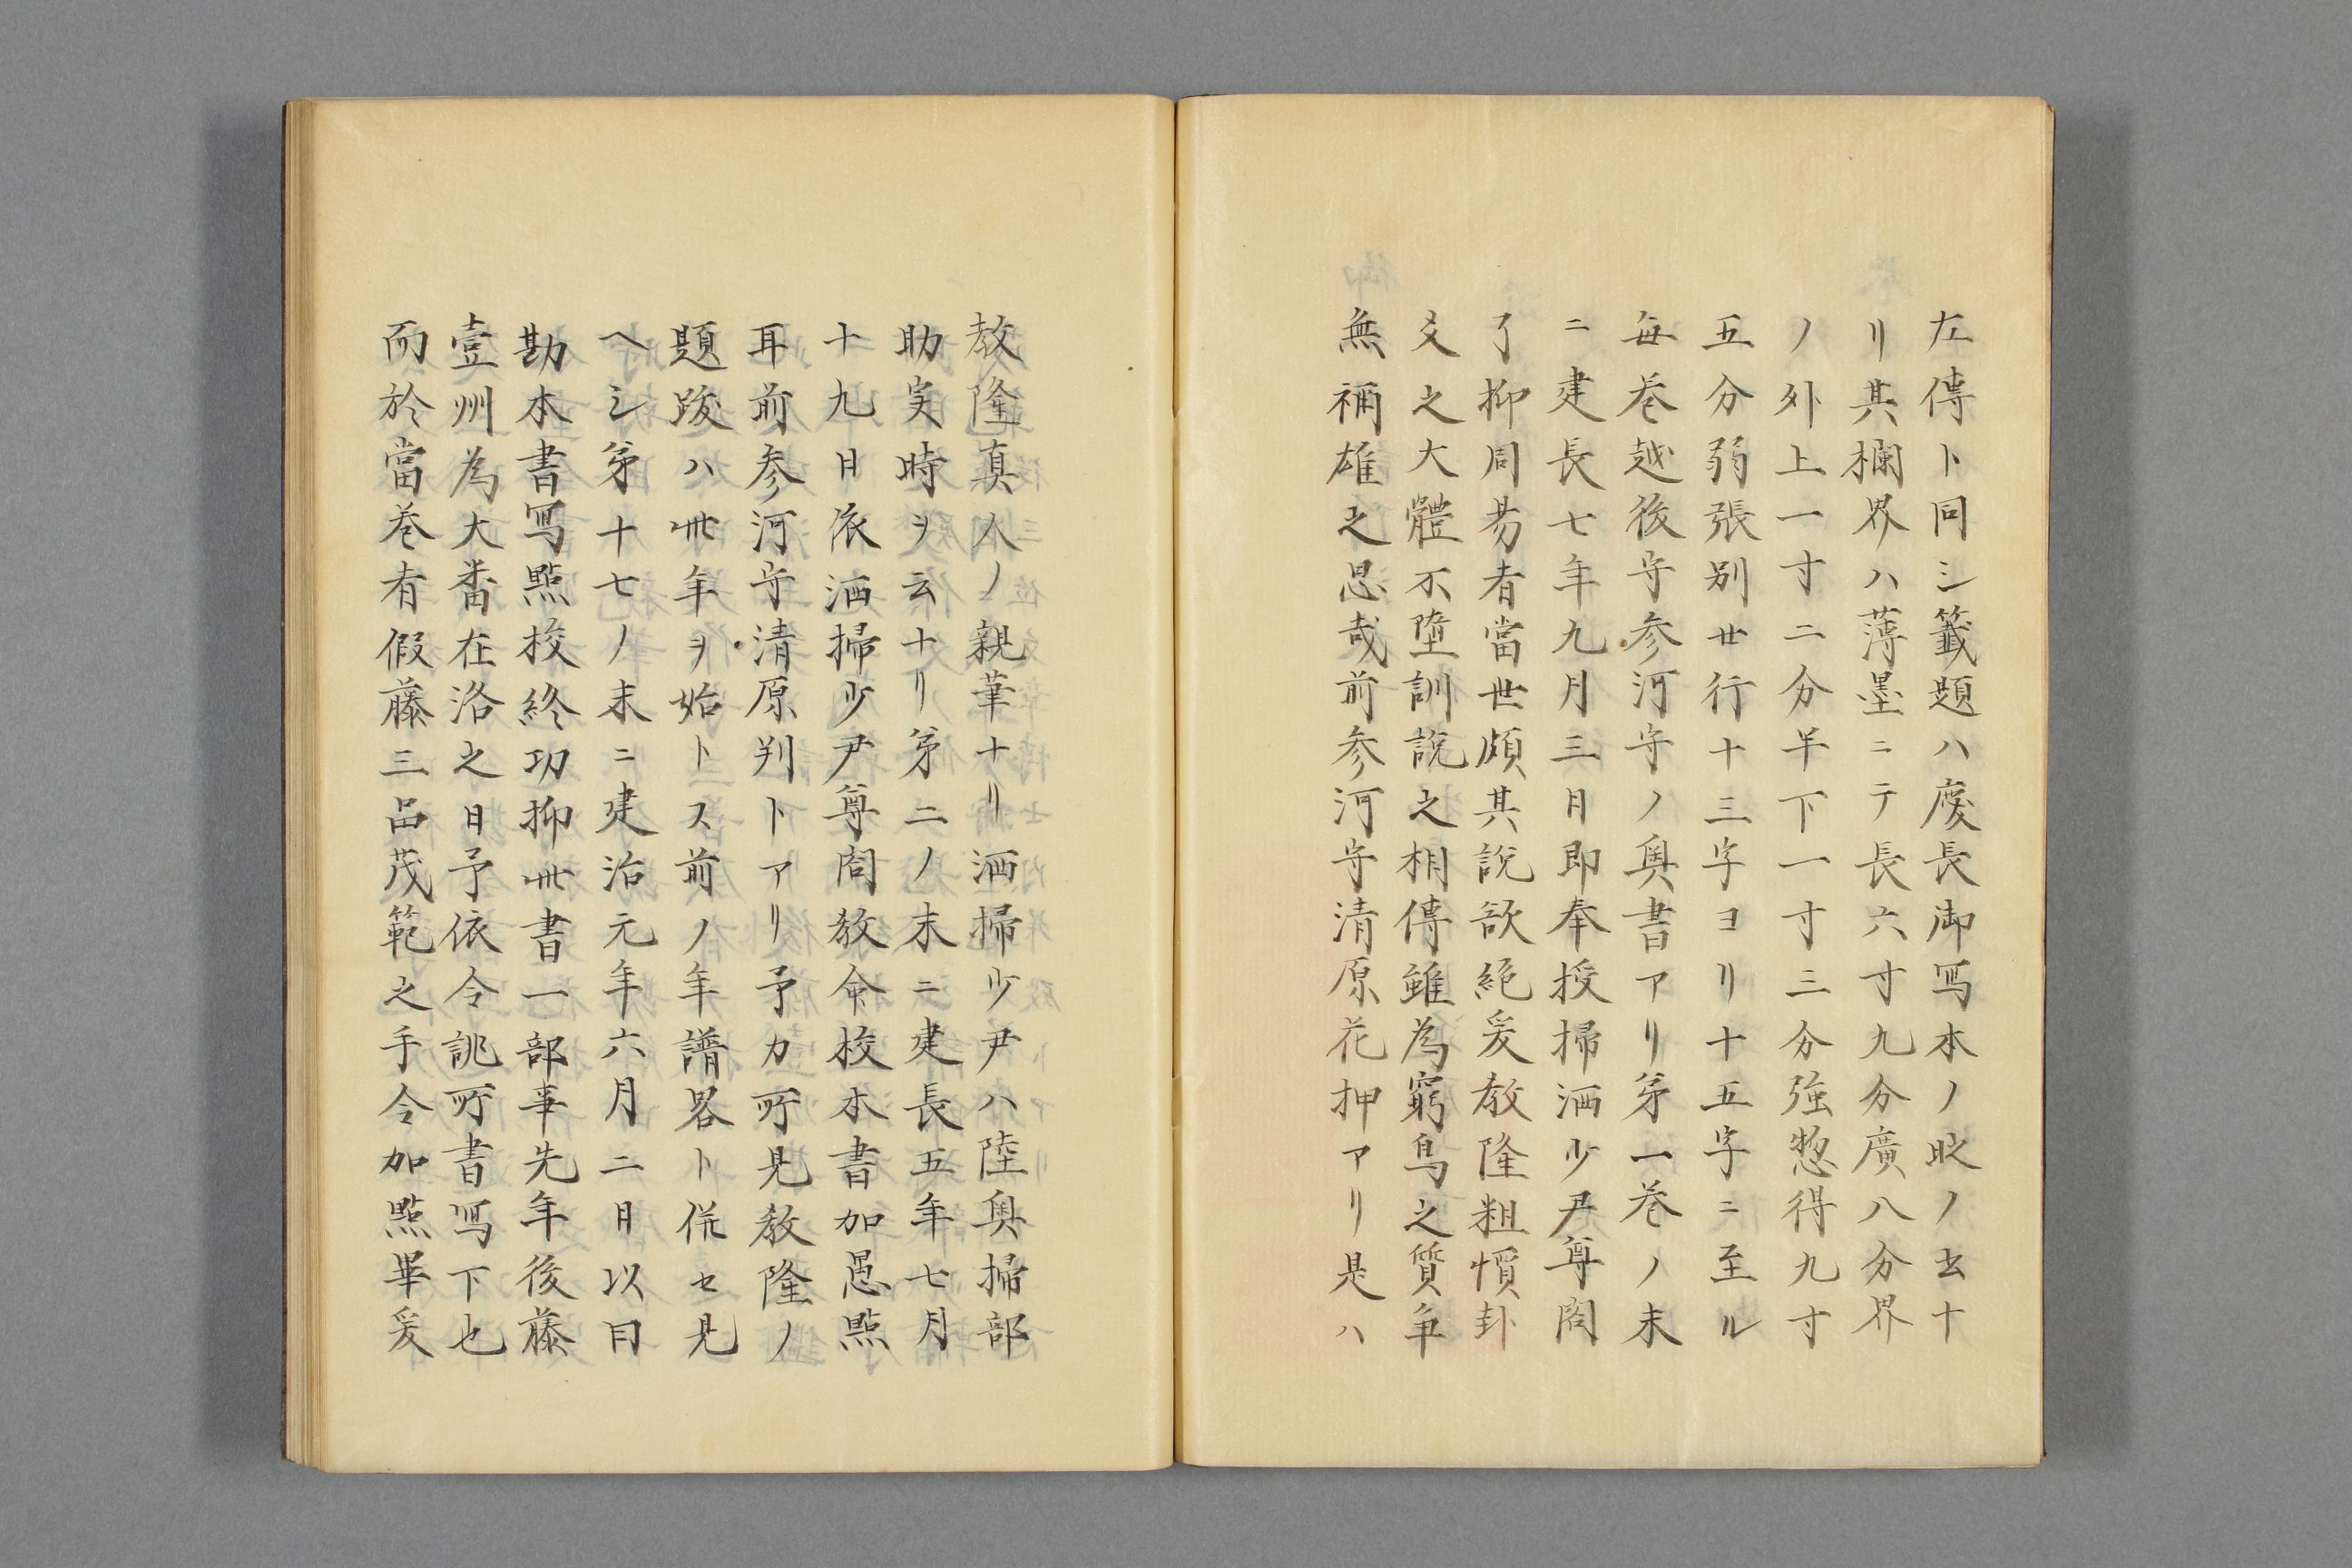 左傳ト同シ籤題ハ慶長御写本ノ時ノ玄十
リ其欄界ハ薄墨ニテ長六寸九分廣八分界
ノ外上一寸二分半下一寸三分強惣得九寸
五分弱張別廿行十三字ヨリ十五字ニ至ル
毎巻越後守参河守ノ奥書アリ第一巻ノ末
ニ建長七年九月三日即奉授掃洒少尹尊閤
了抑周易者當世頗其說欲絶爰教隆粗慣卦
爻之大體不墮訓說之相傳雖為窮鳥之質争
無禰雄之思哉前参河守清原花押アリ是ハ
教隆真人ノ親筆ナリ洒掃少尹ハ陸奥掃部
助実時ヲ云ナリ第二ノ末ニ建長五年七月
十九日依洒掃少尹尊閤教命校本書加愚點
耳前参河守清原判トアリ予カ所見教隆ノ
題跋ハ此年ヲ始トス前ノ年譜畧ト併セ見
ヘシ第十七ノ末ニ建治元年六月二日以自
勘本書写點挍終功抑此書一部事先年後藤
壹州為大番在洛之日予依令誂所書写下也
而於當巻者假藤三品茂範之手令加點畢爰